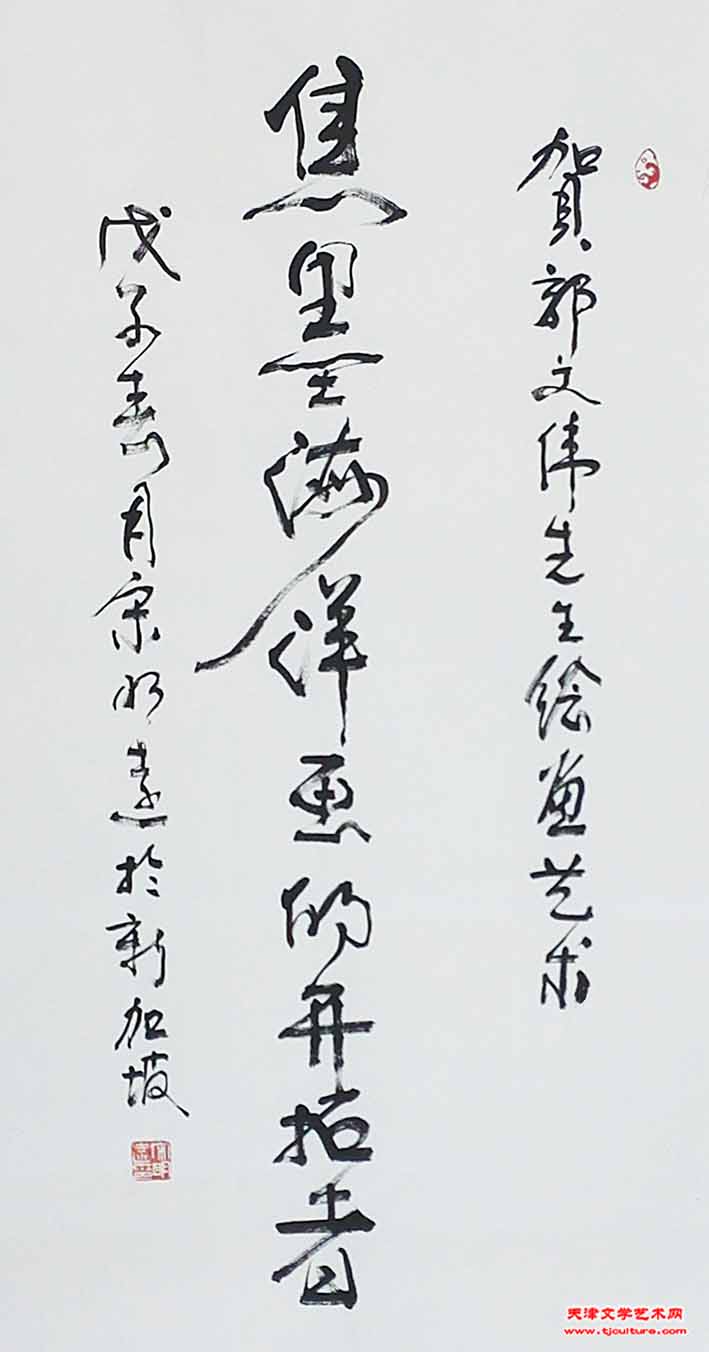 贺郭文伟先生绘画艺术
焦墨海洋画的开拓者
戊子春月宗明远於新加坡
天津文学艺术网
www.tjculture.com